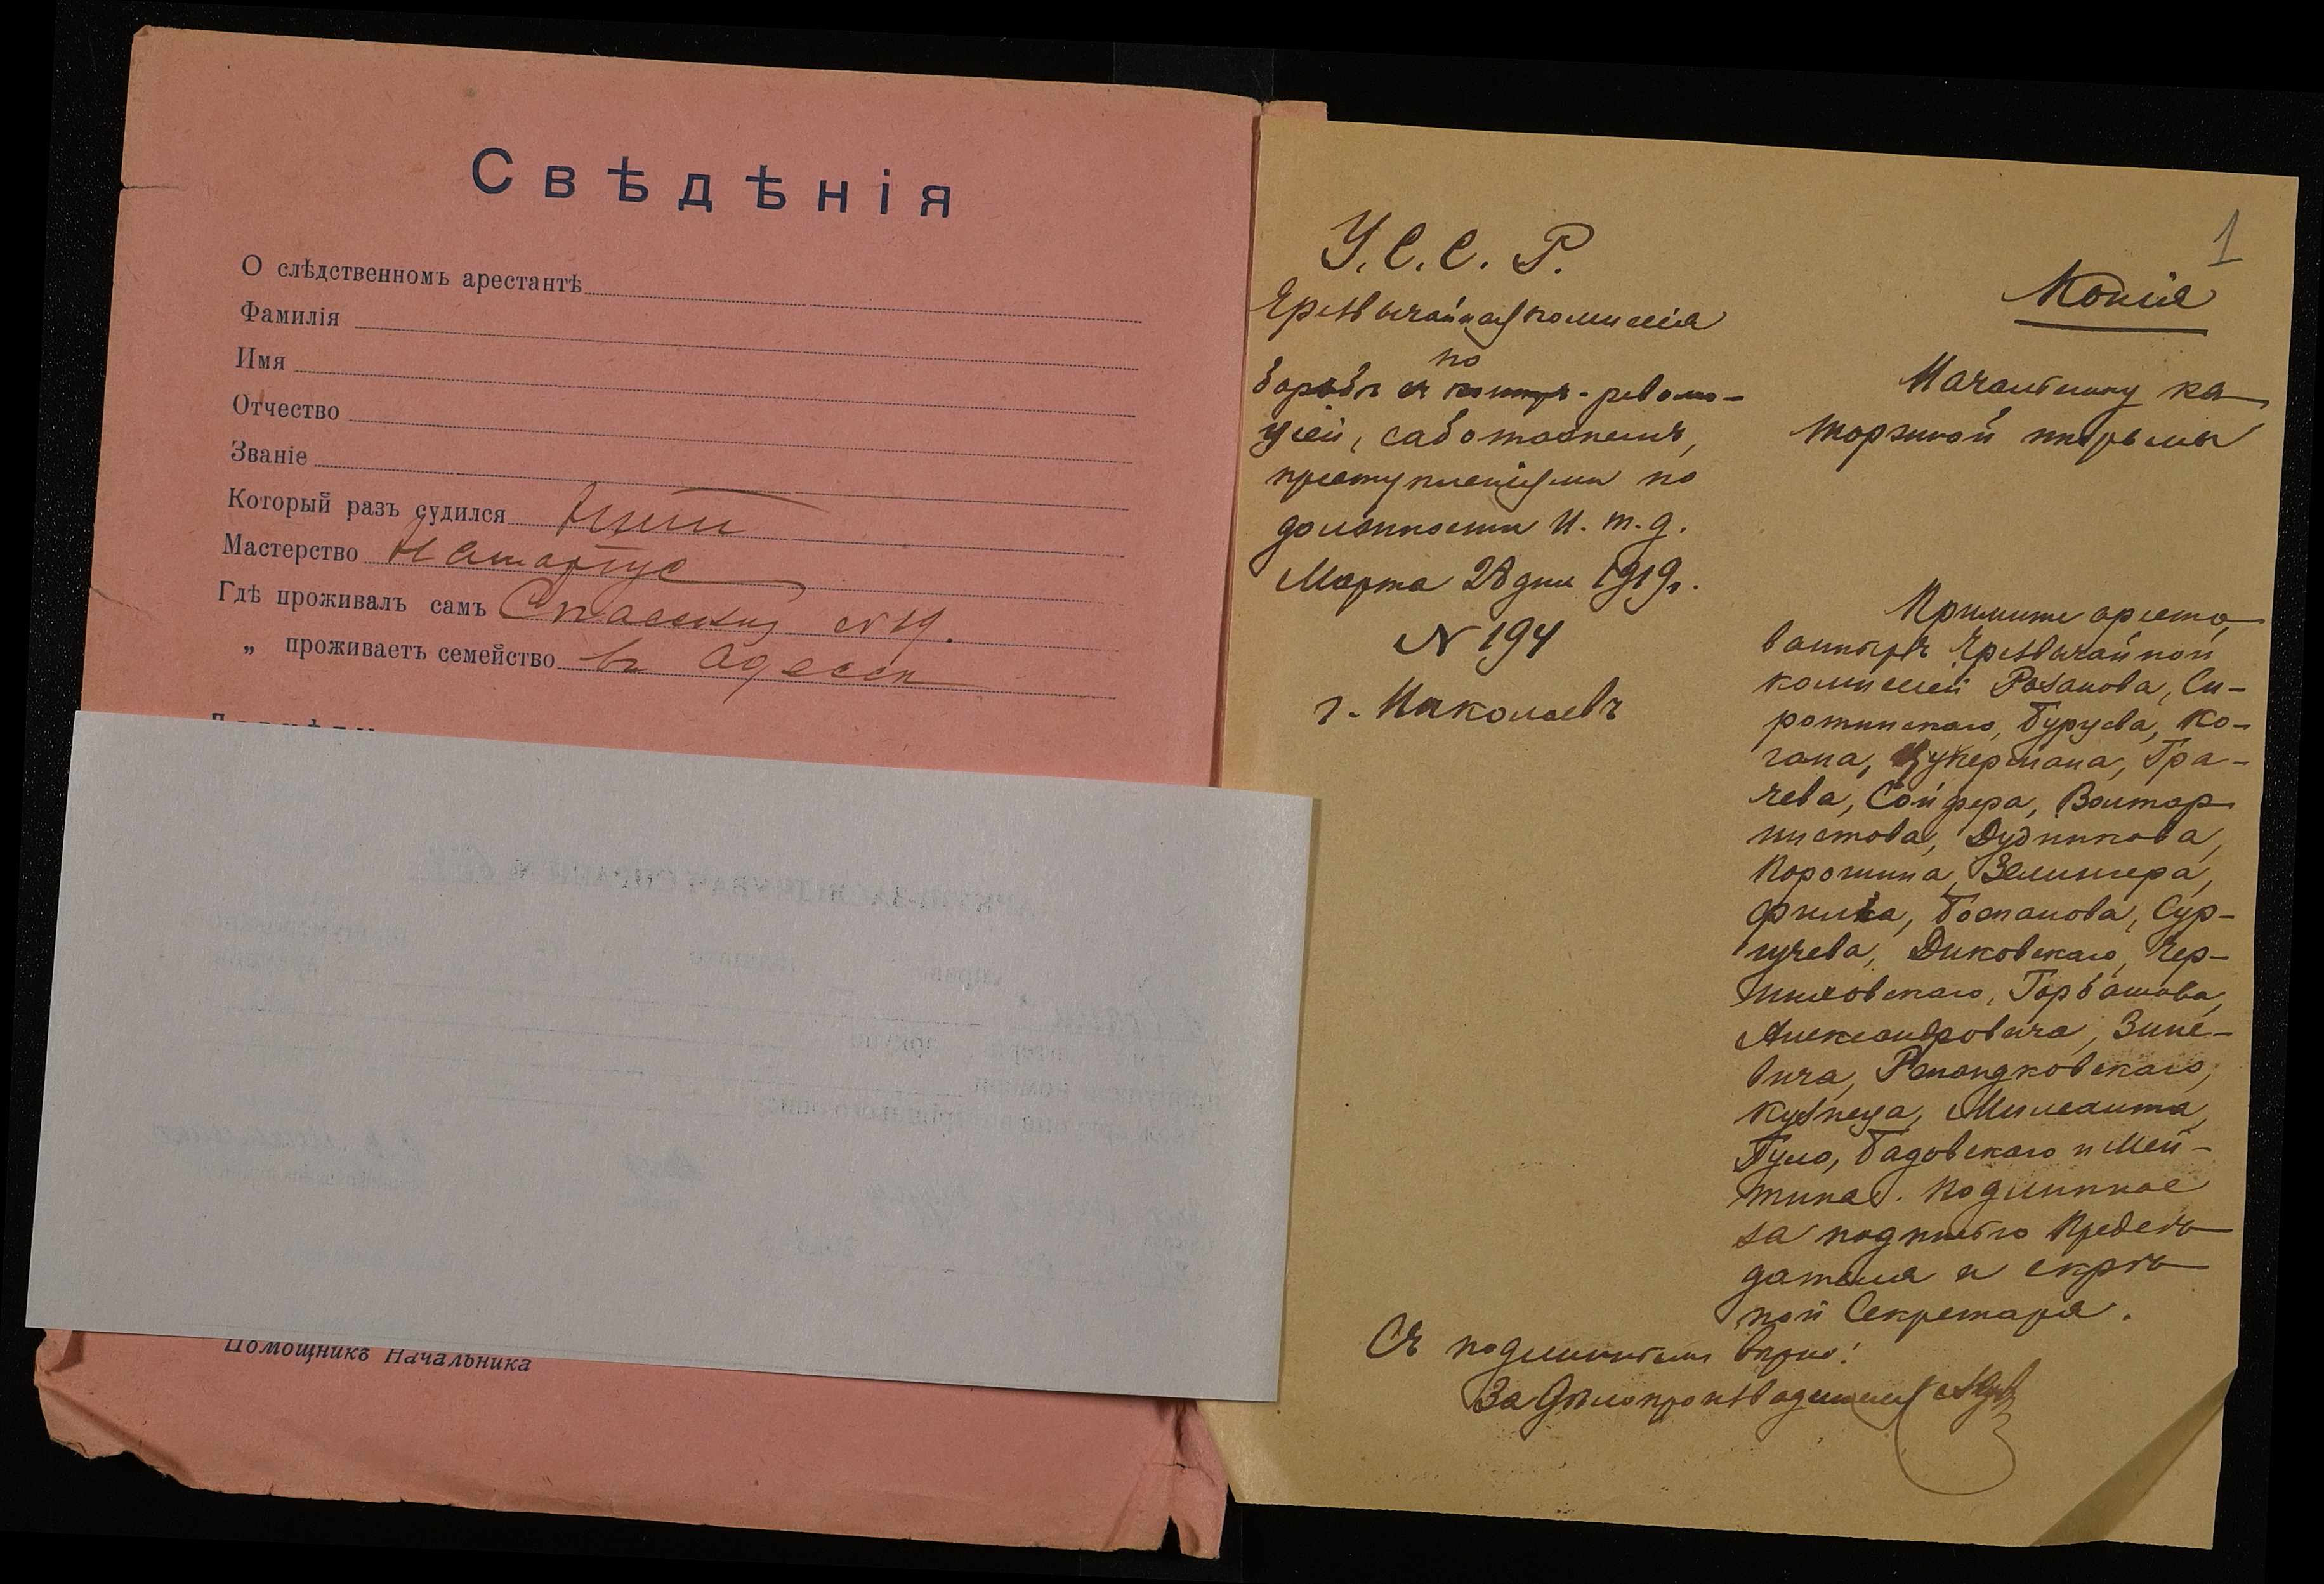 Свѣдѣнія
О слѣдственномъ арестантѣ
Фамилія
Имя
Отчество
Званіе
Который разъ судился
Мастерство Нотаріус
Гдѣ проживалъ самъ Спасская № 19.
„ проживаетъ семейство въ Одессѣ
Помощникъ Начальника
1
У. С. С. Р.
Чрезвычайная комиссія
по
борьбѣ съ контр-револю-
ціей, саботажемъ,
преступленіями по
должности и. т. д.
Марта 28 дня 1919 г.
№ 194
г. Николаевъ
Копія
Начальнику ка
торжной тюрьмы
Примите аресто
ванныхъ Чрезвычайной
комиссіей Розанова, Си-
ротинскаго, Бурцева, Ко-
гана, Цукермана, Гра-
чева, Сойфера, Волтор
нистова, Дудникова,
Порохина, Зелингера,
Фрика, Божанова, Сур-
гучева, Диковскаго, Чер-
няховскаго, Горбашова,
Александровича, Зине-
вича, Кузнеца,
Гуло, Бадовскаго и Мей-
тина. Подлинное
за подписью Предсѣ
дателя и скрѣп
ной Секретаря.
Съ подлиннымъ вѣрно:
За Дѣлопроизводителя